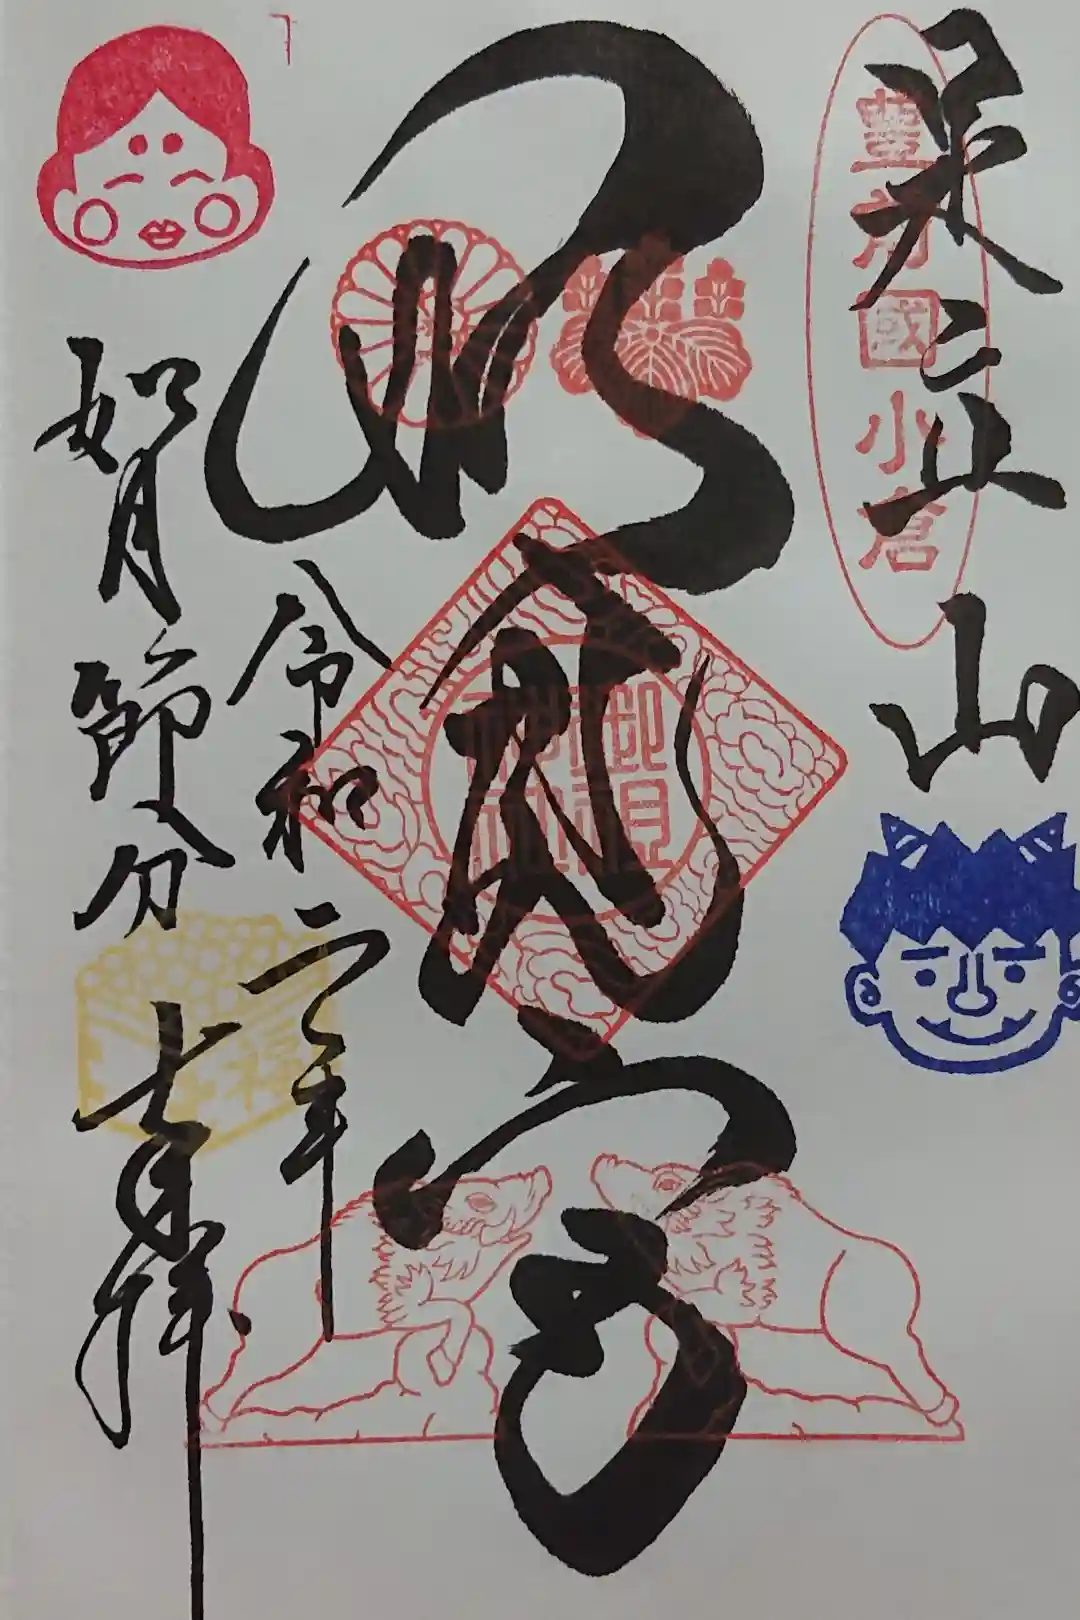 足立山
豊前國小倉
妙見宮
御祖
神社
令和二年
如月節分
七日拝